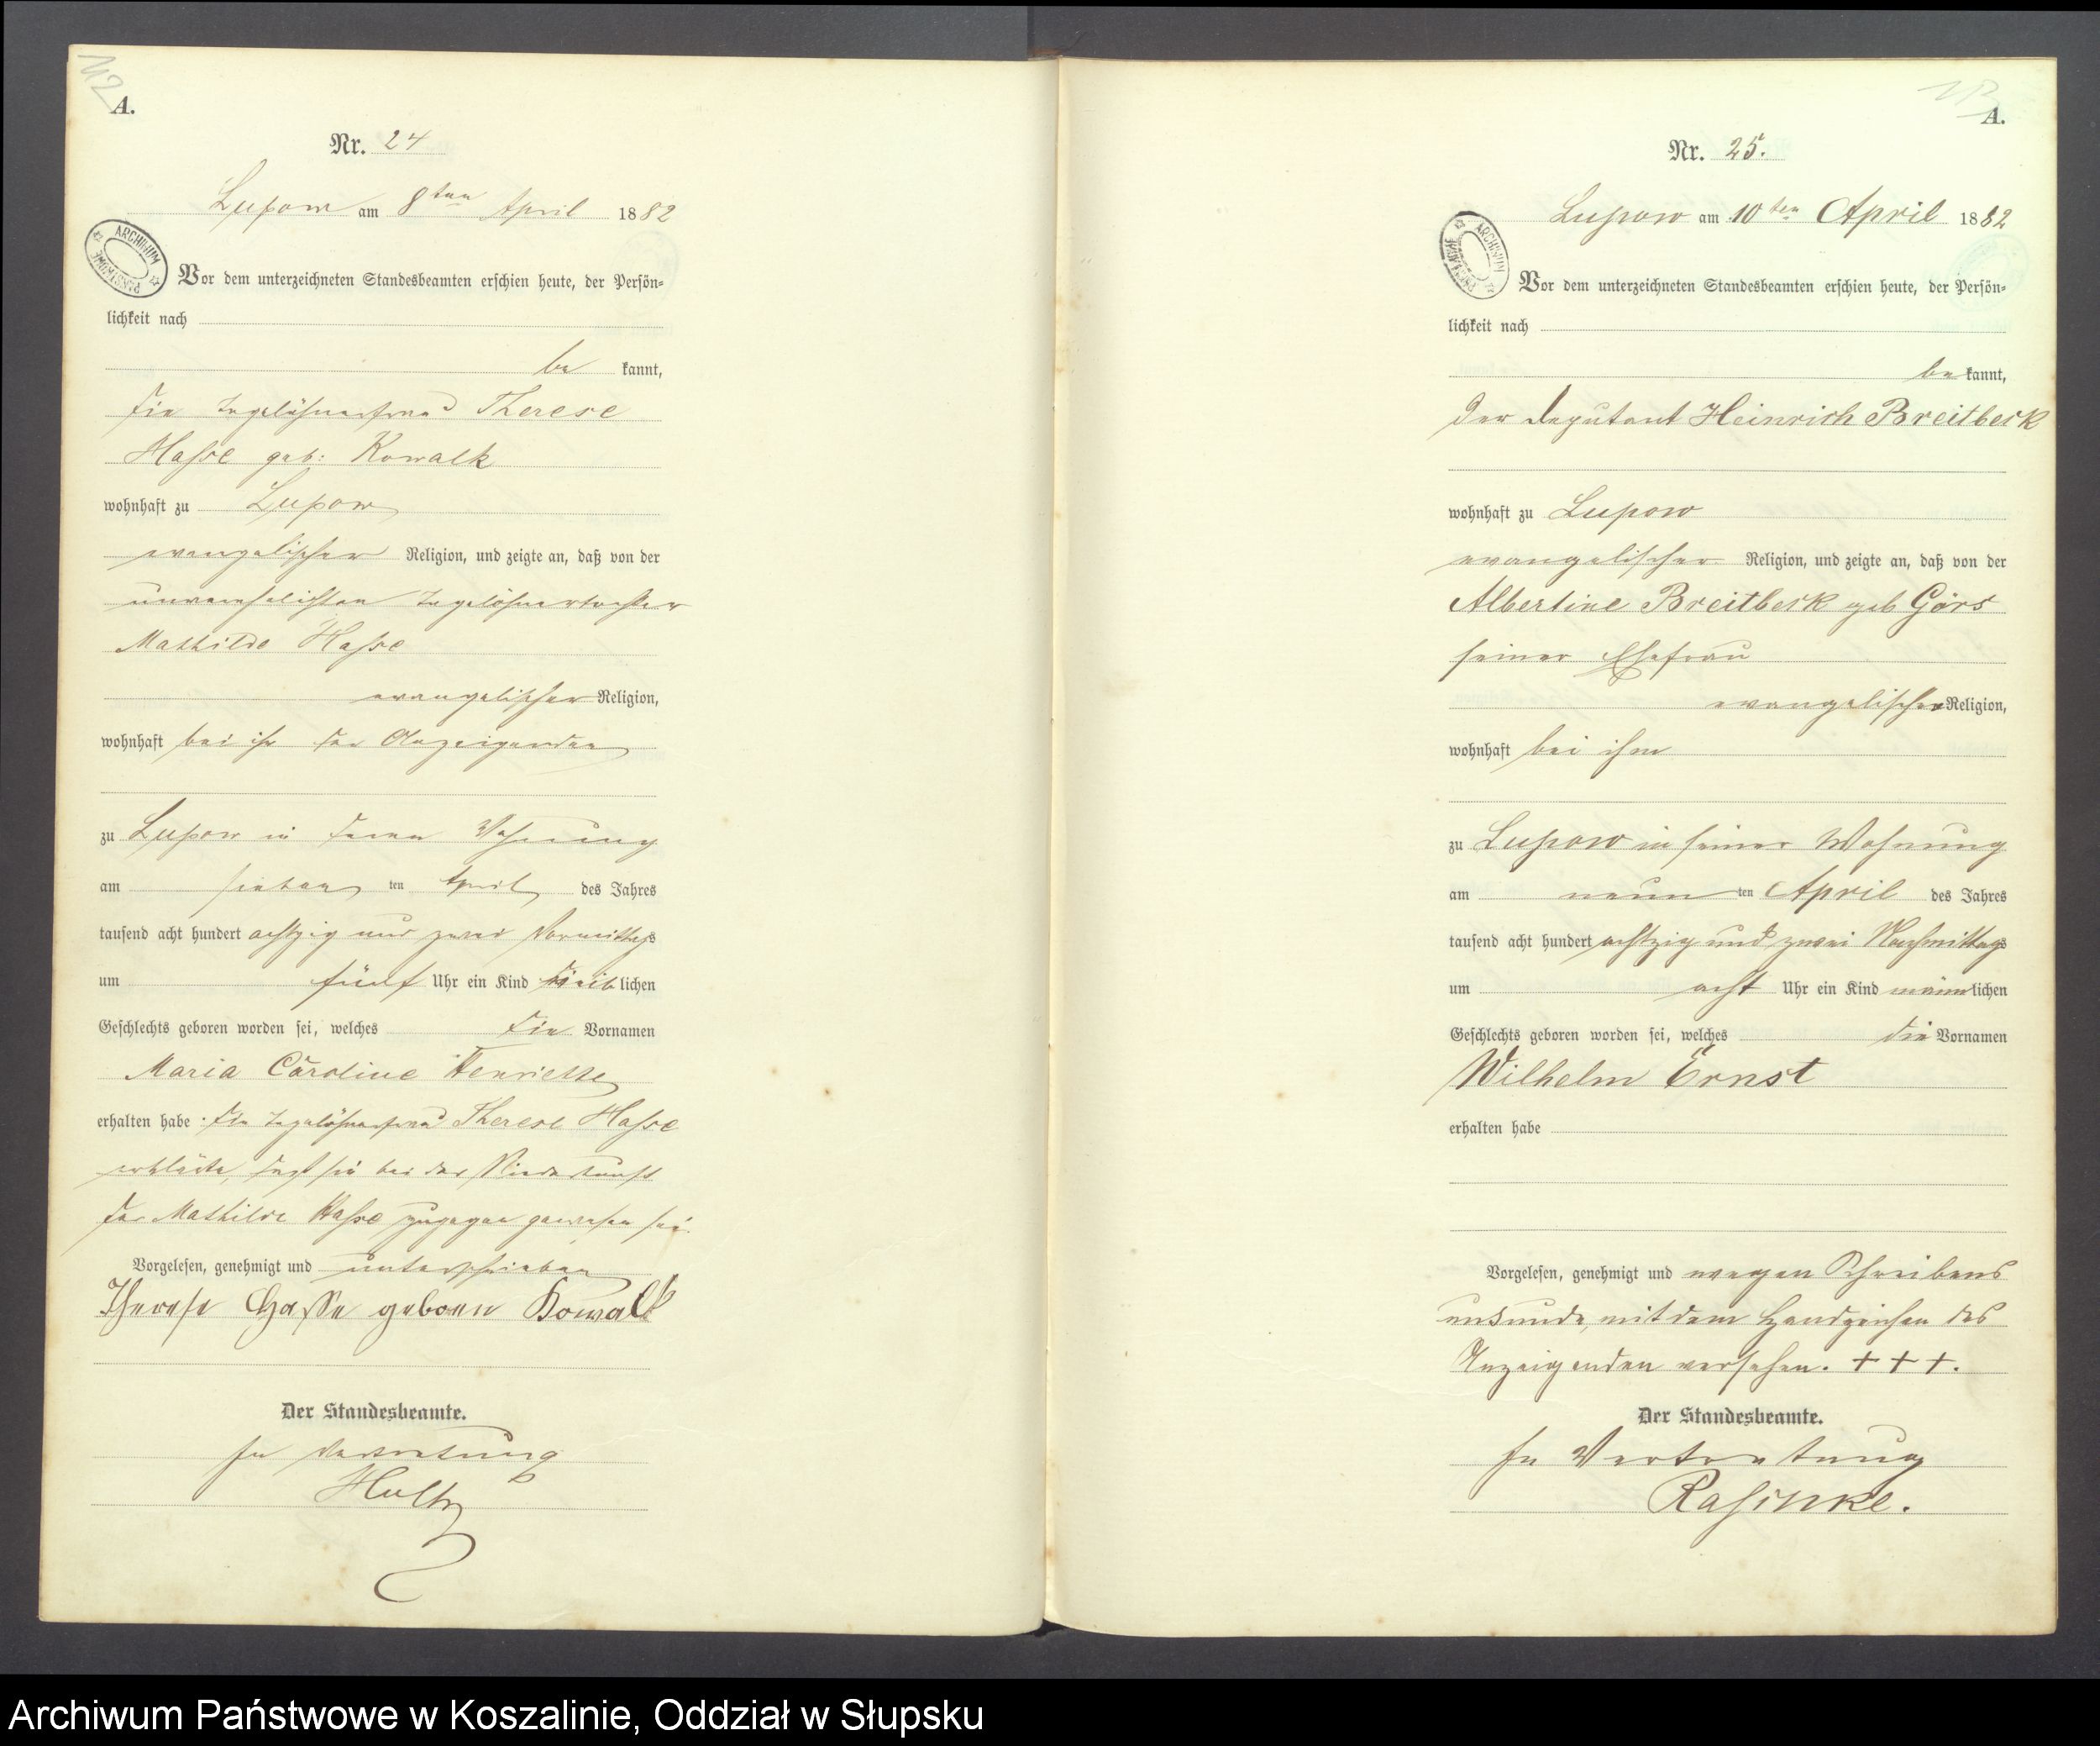 A.
Nr. 24
Lupow am 8ten April 1882
ARCHIWUM
PAŃSTWOWE
Vor dem unterzeichneten Standesbeamten erschien heute, der Persön-
lichkeit nach
be kannt,
die Tagelöhnerfrau Therese
Hasse geb: Kowalk
wohnhaft zu Lupow
evangelischer Religion, und zeigte an, daß von der
unverehelichten Tagelöhnertochter
Mathilde Hasse
evangelischer Religion,
wohnhaft bei ihr der Anzeigenden
zu Lupow in deren Wohnung
am sieben ten April des Jahres
tausend acht hundert achtzig und zwei Vormittags
um fünf Uhr ein Kind weiblichen
Geschlechts geboren worden sei, welches die Vornamen
Maria Caroline Henriette
erhalten habe. Die Tagelöhnerfrau Therese Hasse
erklärte, daß sie bei der Niederkunft
der Mathilde Hasse zugegen gewesen sei.
Vorgelesen, genehmigt und unterschrieben
Therese Hasse geboren Kowalk
Der Standesbeamte.
In Vertretung
A.
Nr. 25.
Lupow am 10ten April 1882
ARCHIWUM
PAŃSTWOWE
Vor dem unterzeichneten Standesbeamten erschien heute, der Persön-
lichkeit nach
be kannt,
der Deputant Heinrich Breitbeck
wohnhaft zu Lupow
evangelischer Religion, und zeigte an, daß von der
Albertine Breitbeck geb Görs
seiner Ehefrau
evangelischer Religion,
wohnhaft bei ihm
zu Lupow in seiner Wohnung
am neun ten April des Jahres
tausend acht hundert achtzig und zwei Nachmittags
um acht Uhr ein Kind männlichen
Geschlechts geboren worden sei, welches die Vornamen
Wilhelm Ernst
erhalten habe
Vorgelesen, genehmigt und wegen Schreibens
unkunde, mit dem Handzeichen des
Anzeigenden versehen. + + +.
Der Standesbeamte.
In Vertretung
Archiwum Państwowe w Koszalinie, Oddział w Słupsku